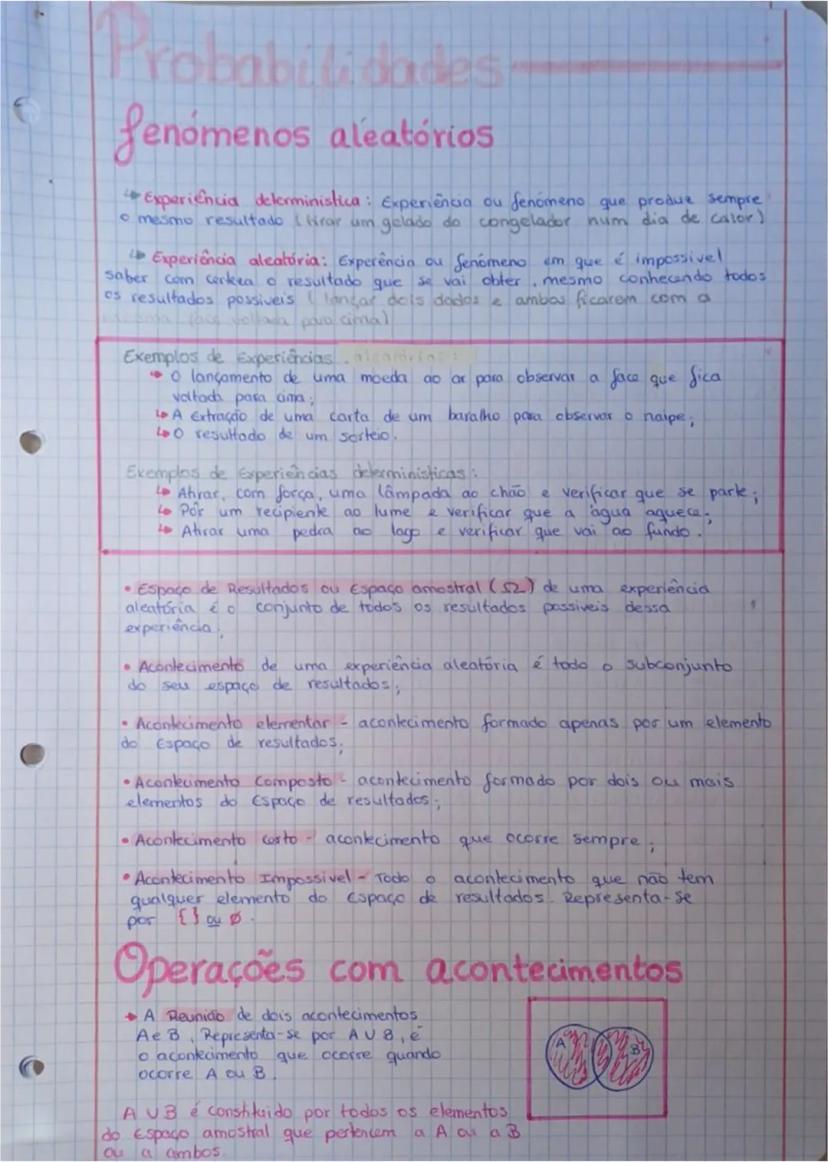 Probabilidades
fenómenos aleatórios
↳ Experiência determinística: Experiência ou fenómeno que produz sempre
o mesmo resultado (tirar um gelado do congelador num dia de calor)
↳ Experiência aleatória: Experência ou fenómeno em que é impossivel
saber com certeza o resultado que se vai obter, mesmo conhecendo todos
os resultados possiveis (lançar dois dados e ambos ficarem com a
mesma face voltada para cima)
Exemplos de Experiências aleatórias:
↳ O lançamento de uma moeda ao ar para observar a face que fica
voltada para cima;
↳ A Extração de uma carta de um baralho para observar o naipe;
↳ O resultado de um sorteio.
Exemplos de Experiências deterministicas:
↳ Atirar, com força, uma lâmpada ao chão e verificar que se parte;
↳ Pôr um recipiente ao lume e verificar que a água aquece;
↳ Atirar uma pedra ao lago e verificar que vai ao fundo.
• Espaço de Resultados ou Espaço amostral (Ω) de uma experiência
aleatória é o conjunto de todos os resultados possiveis dessa
experiência;
• Acontecimento de uma experiência aleatória é todo o subconjunto
do seu espaço de resultados;
• Acontecimento elementar - acontecimento formado apenas por um elemento
do Espaço de resultados;
• Acontecimento Composto - acontecimento formado por dois ou mais
elementos do Espaço de resultados;
• Acontecimento certo - acontecimento que ocorre sempre;
• Acontecimento Impossivel - Todo o acontecimento que não tem
qualquer elemento do Espaço de resultados. Representa-se
por {} ou ∅.
Operações com acontecimentos
→ A Reunião de dois acontecimentos
A e B, Representa-se por A ∪ B, é
o acontecimento que ocorre quando
ocorre A ou B.
A B
A ∪ B é constituido por todos os elementos
do Espaço amostral que pertencem a A ou a B
ou a ambos.